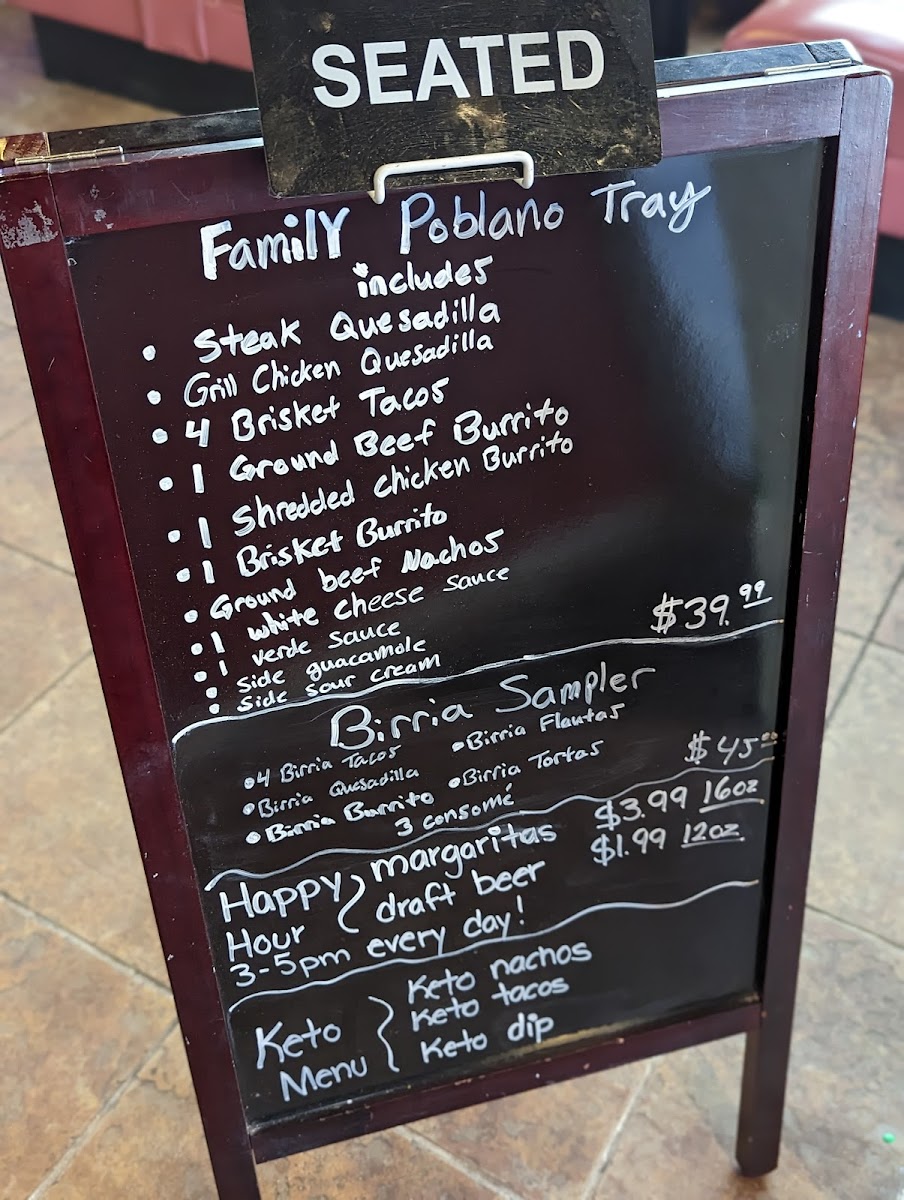 SEATED
Family Poblano Tray
includes
• Steak Quesadilla
• Grill Chicken Quesadilla
• 4 Brisket Tacos
• 1 Ground Beef Burrito
• 1 Shredded chicken Burrito
• 1 Brisket Burrito
• Ground beef Nachos
• 1 white cheese sauce
• 1 verde sauce
• side guacamole
• side sour cream
$39.99
Birria Sampler
• 4 Birria Tacos
• Birria Quesadilla
• Birria Burrito
• Birria Flautas
• Birria Tortas
3 consomé
$45.00
Happy Hour
margaritas $3.99 16oz
draft beer $1.99 12oz.
3-5pm every day!
Keto Menu
Keto nachos
Keto tacos
Keto dip